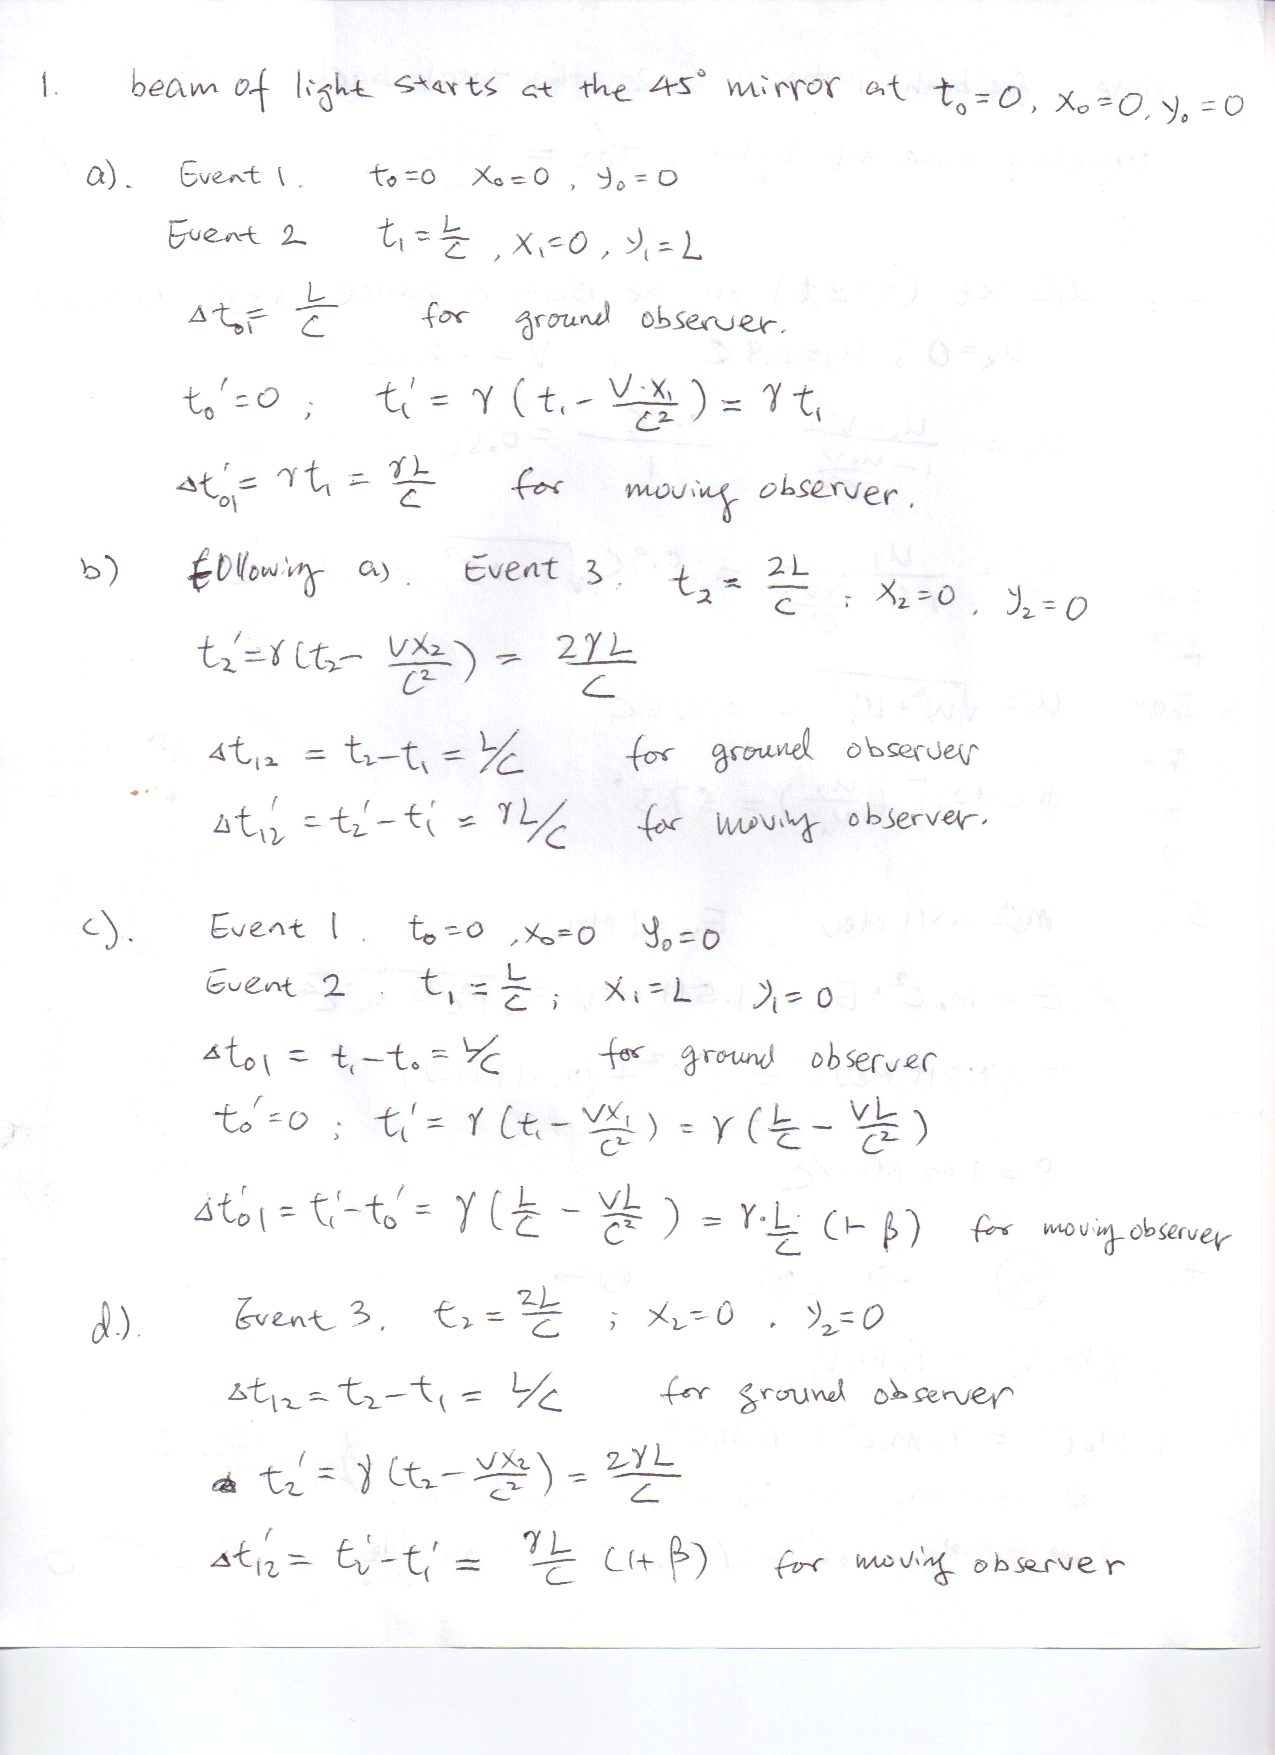 1. beam of light starts at the 45° mirror at t₀=0, x₀=0, y₀=0
a). Event 1. t₀=0 x₀=0, y₀=0
Event 2 t₁=L/C, x₁=0, y₁=L
Δt₀₁= L/C for ground observer.
t₀'=0; t₁' = γ(t₁- V·x₁/C²) = γt₁
Δt₀₁'= γt₁ = γL/C for moving observer.
b) following a). Event 3. t₂ = 2L/C; x₂=0, y₂=0
t₂'=γ(t₂- Vx₂/C²) = 2γL/C
Δt₁₂ = t₂-t₁ = L/C for ground observer
Δt₁₂' = t₂'-t₁' = γL/C for moving observer.
c). Event 1. t₀=0, x₀=0 y₀=0
Event 2. t₁=L/C; x₁=L y₁=0
Δt₀₁ = t₁-t₀= L/C for ground observer
t₀'=0; t₁'= γ(t₁- Vx₁/C²) = γ(L/C - VL/C²)
Δt₀₁'= t₁'-t₀' = γ(L/C - VL/C²) = γ·L/C (1-β) for moving observer
d.). Event 3. t₂=2L/C; x₂=0. y₂=0
Δt₁₂=t₂-t₁ = L/C for ground observer
t₂'=γ(t₂- Vx₂/C²) = 2γL/C
Δt₁₂'= t₂'-t₁' = γL/C (1+β) for moving observer